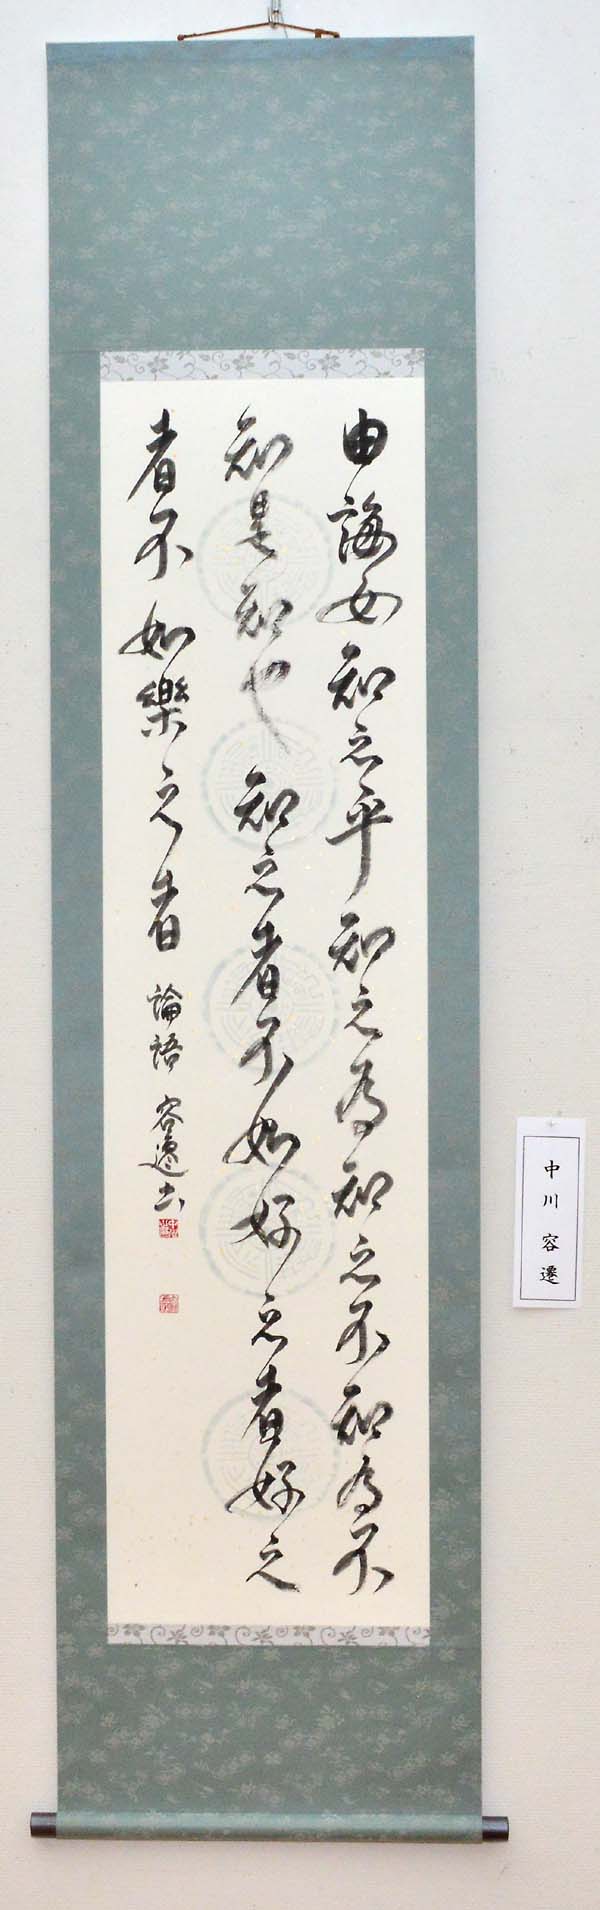 由誨女知之乎知之為知之不知為不
知是知也知之者不如好之者好之
者不如樂之者 論語 容遷書
中川容遷